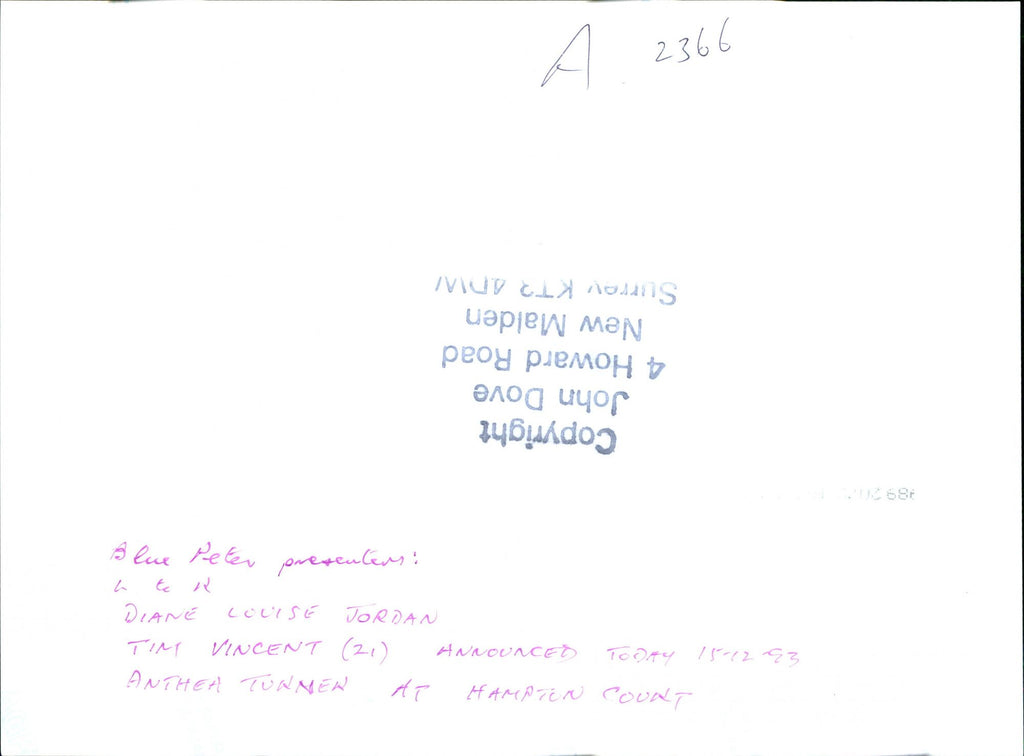 A 2366
Copyright
John Dove
4 Howard Road
New Malden
Surrey KT3 4DW
Blue Peter presenters:
L to R
DIANE LOUISE JORDAN
TIM VINCENT (21) ANNOUNCED TODAY 15-12-93
ANTHEA TURNER AT HAMPTON COURT